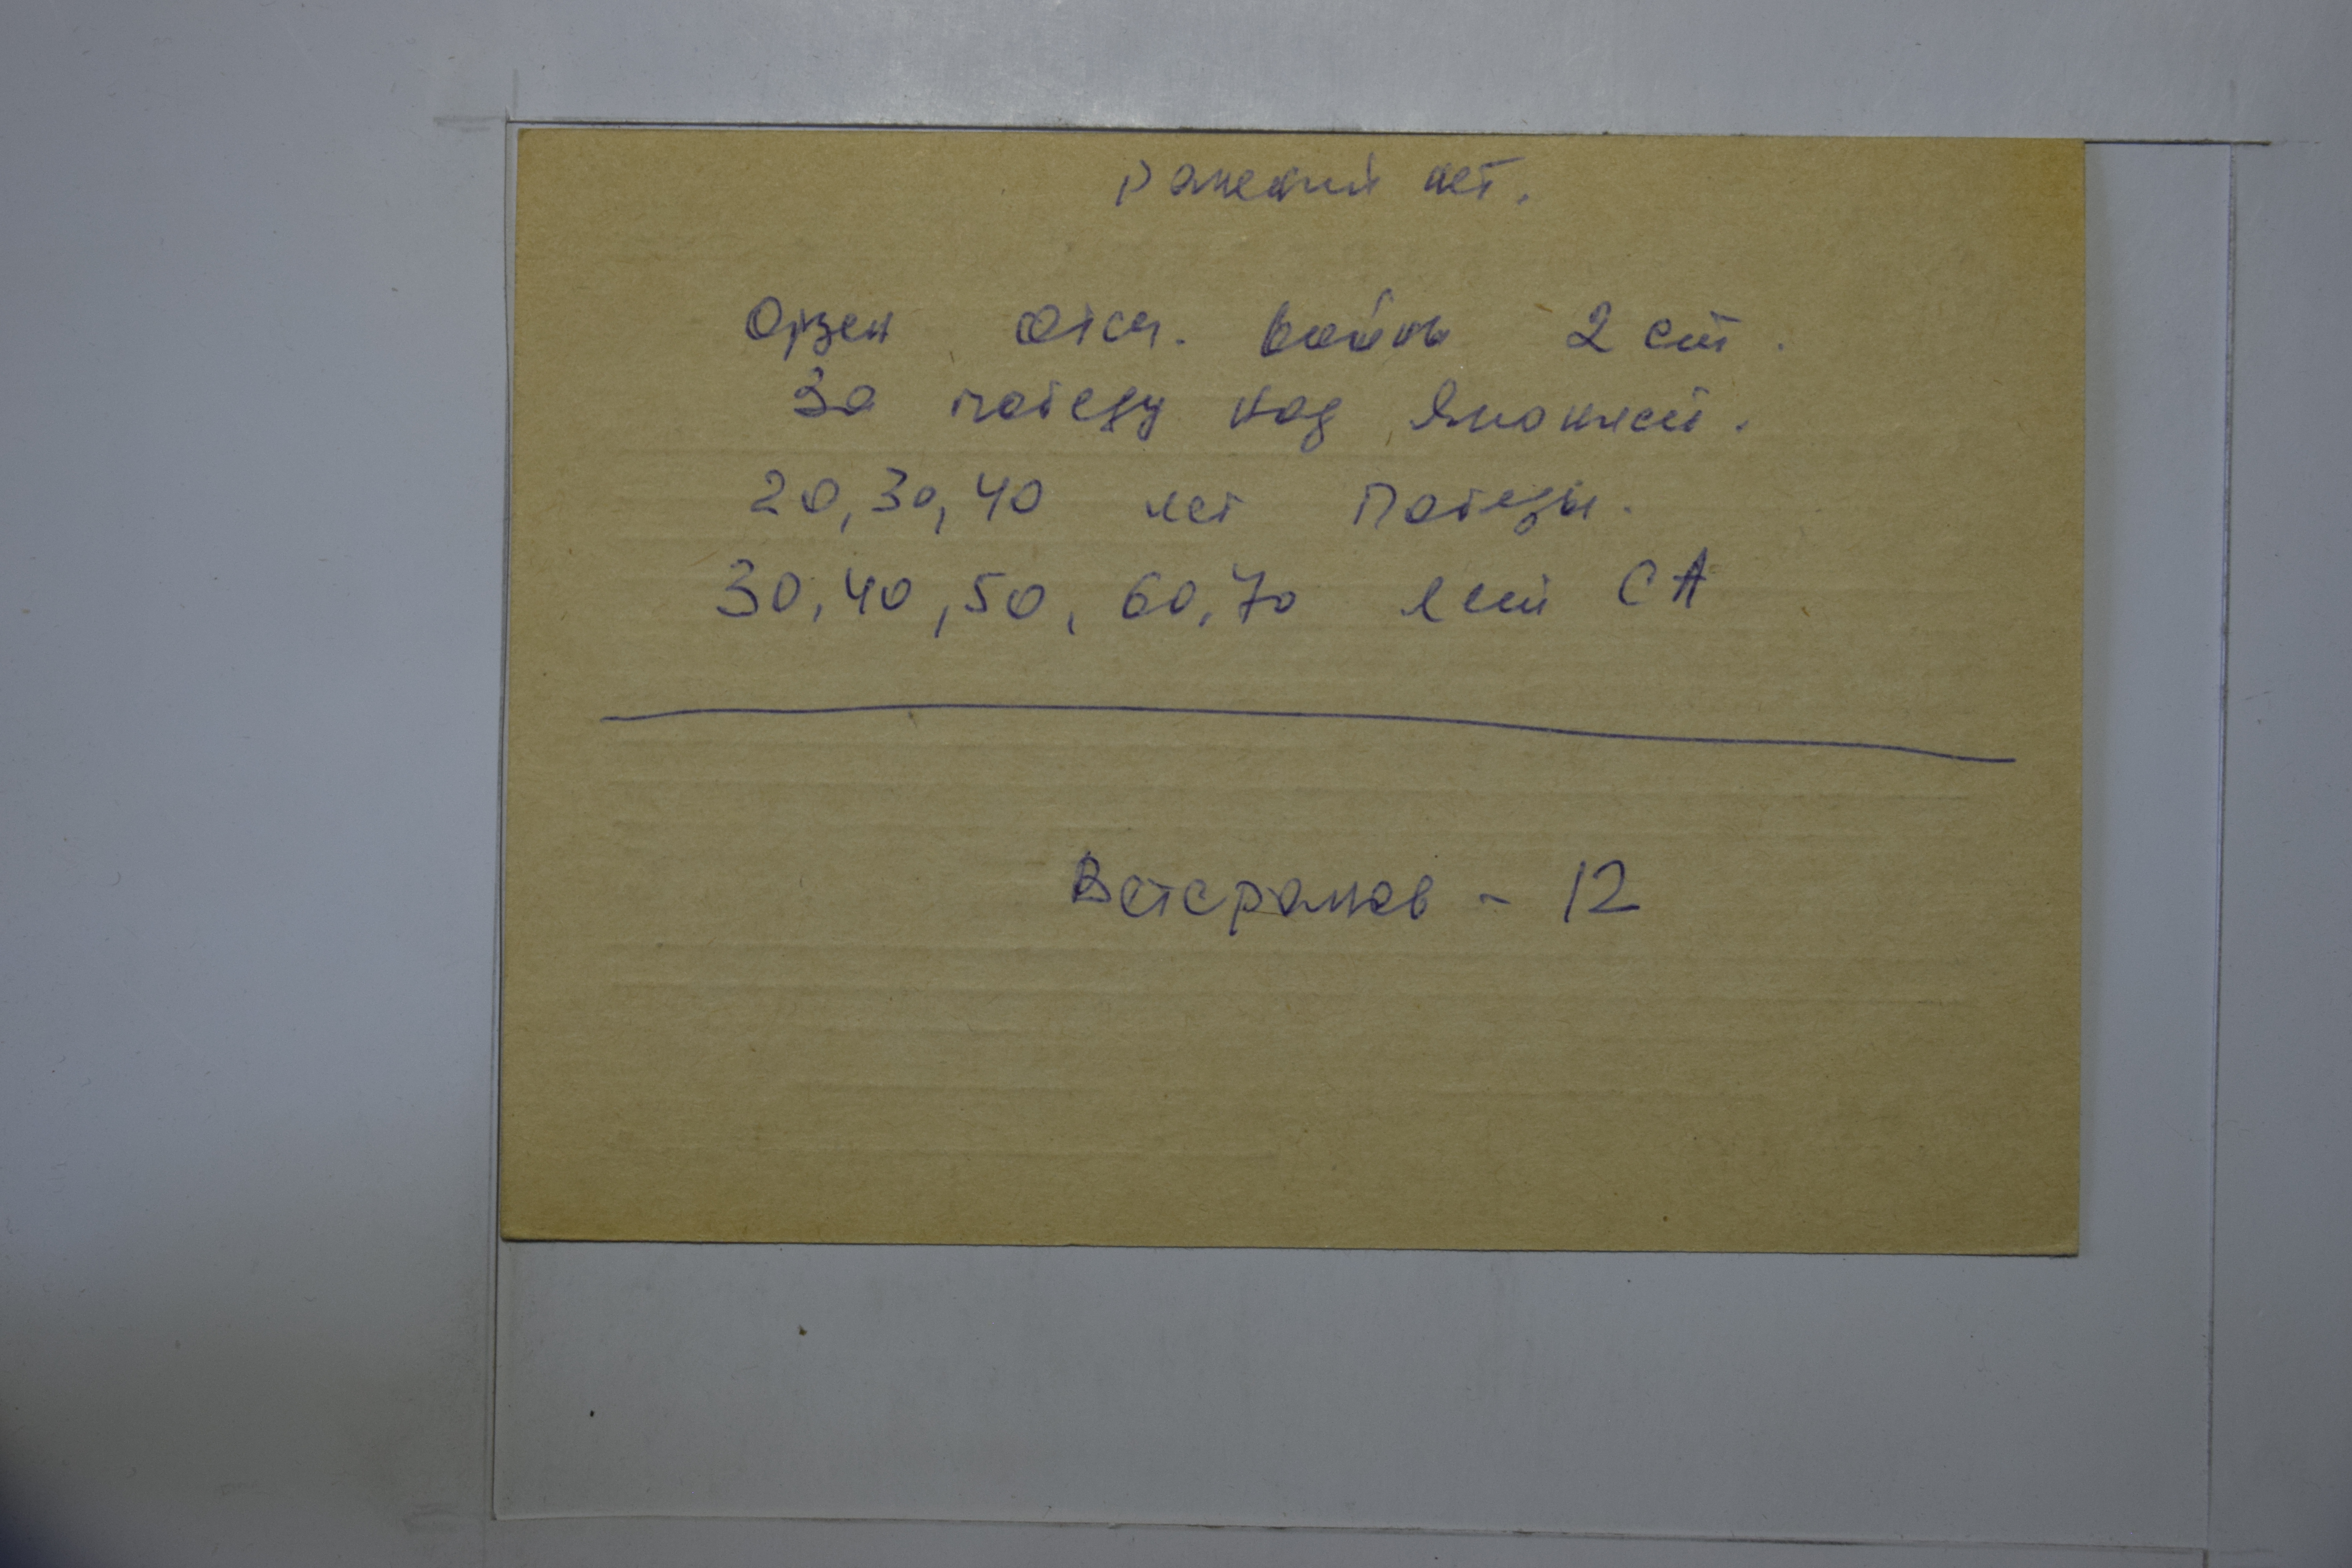 ранений нет.
Орден Отеч. войны 2 ст.
За победу над Японией.
20, 30, 40 лет Победы.
30, 40, 50, 60, 70 лет СА
Ветеранов - 12